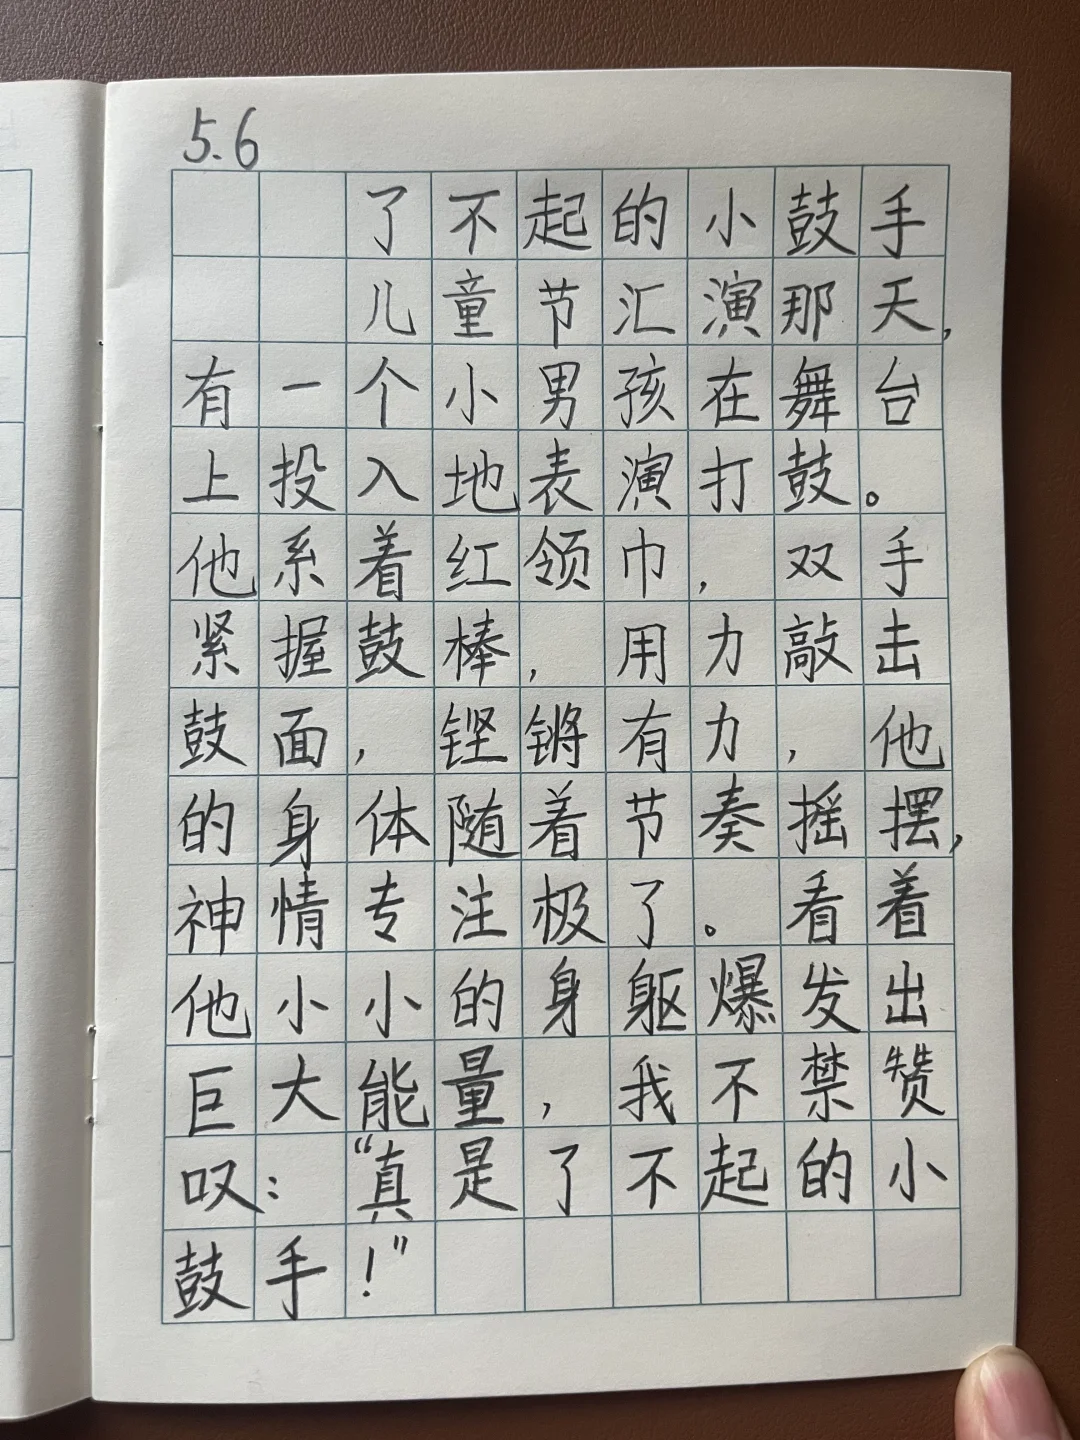 5.6
了不起的小鼓手
儿童节汇演那天,
有一个小男孩在舞台
上投入地表演打鼓。
他系着红领巾,双手
紧握鼓棒,用力敲击
鼓面,铿锵有力,他
的身体随着节奏摇摆,
神情专注极了。看着
他小小的身躯爆发出
巨大能量,我不禁赞
叹:“真是了不起的小
鼓手!”